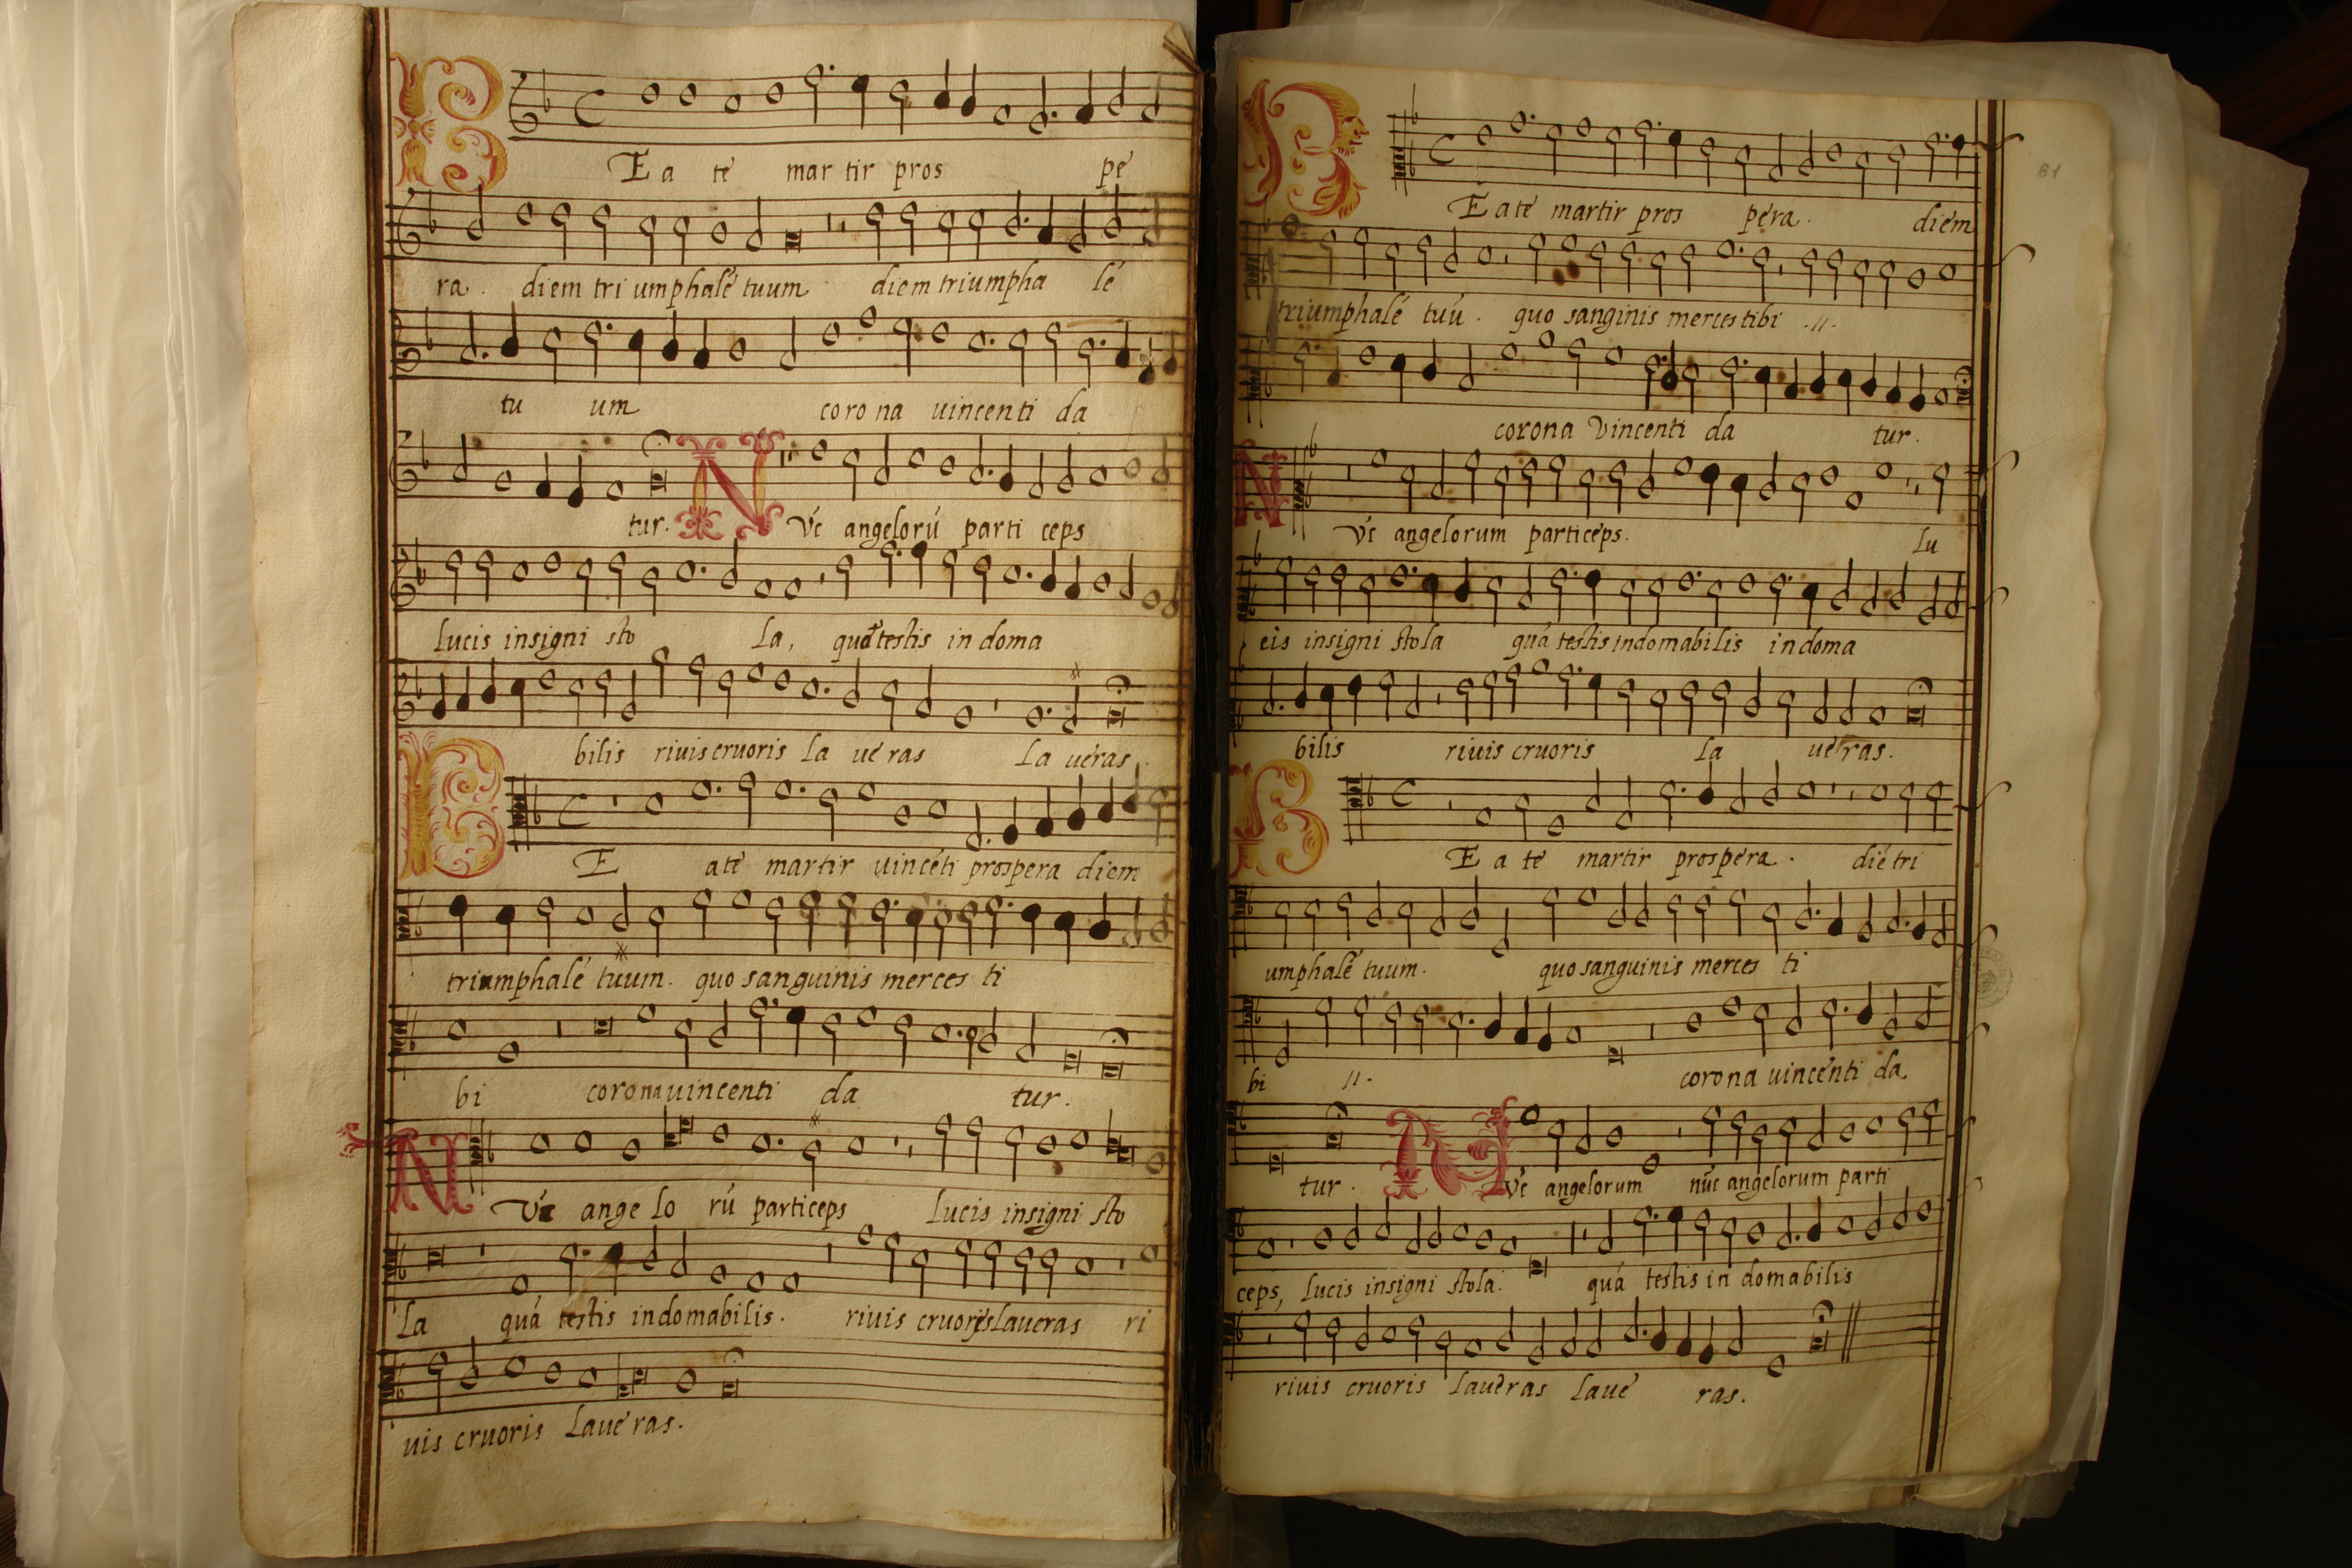 BEate martir pros pe
ra. diem triumphalé tuum diem triumpha lé
tu um corona uincenti da
tur. NVć angelorú parti ceps
lucis insigni sto la, quá testis in doma
bilis riuis cruoris la ueras la ueras.
BE ate martir uincéti prospera diem
triumphalé tuum. quo sanguinis merces ti
bi corona uincenti da tur.
NVć angelo rú particeps lucis insigni sto
la quá testis indomabilis. riuis cruoris laueras ri
uis cruoris laueras.
81
BEate martir pros péra. diem
triumphalé tuú. quo sanginis merces tibi .//.
corona Vincenti da tur.
NVć angelorum particéps. lu
cis insigni stola quá testis indomabilis indoma
bilis riuis cruoris la ueras.
BEa te martir prospera. dié tri
umphalé tuum. quo sanguinis merces ti
bi //. corona uincenti da
tur. NVć angelorum núc angelorum parti
ceps, lucis insigni stola. quá testis in domabilis
riuis cruoris laueras laue ras.